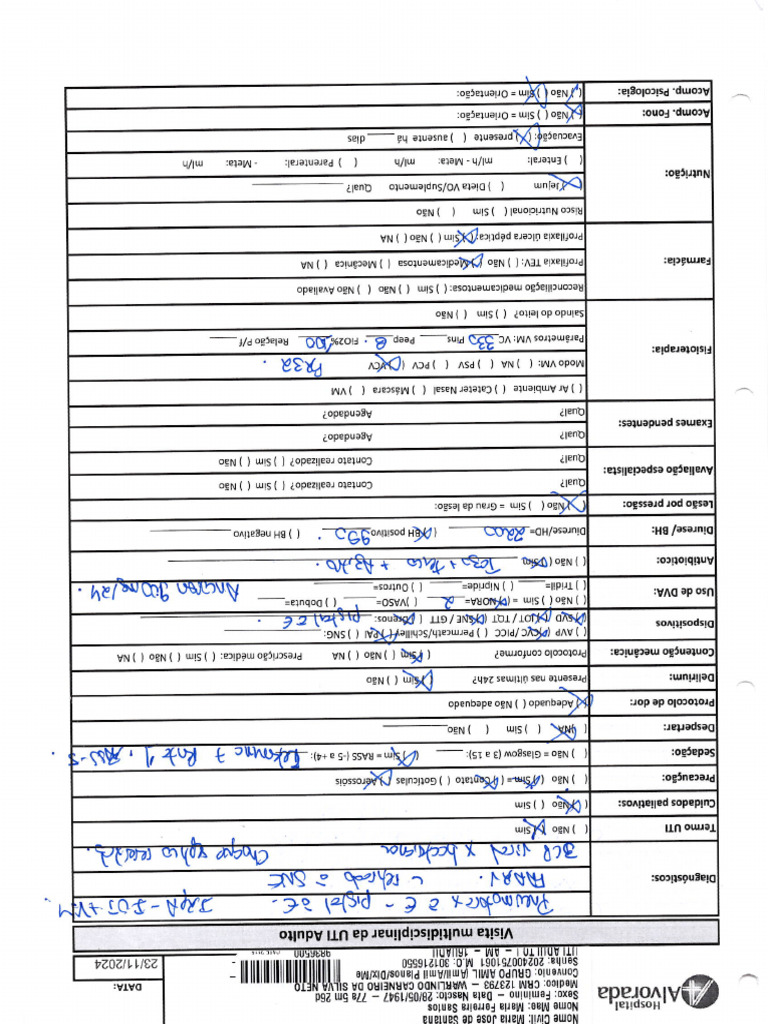 Hospital
Alvorada
Nome Civil: Maria Jose de Santana
Nome Mae: Maria Ferreira Santos
Sexo: Feminino – Data Nascto: 28/05/1947 – 77a 5m 26d
Medico: CRM 123793 – WARLINDO CARNEIRO DA SILVA NETO
Convenio: GRUPO AMIL/Amil/Amil Planos/Dix/Me
Senha: 20240751061 M.O: 301216550
UTI ADULTO I – AM – 16I/ADII
9836500
DATA:
23/11/2024
Visita multidisciplinar da UTI Adulto
Diagnósticos:
Pneumotórax à E - pigtail à E. IRpA - IOT + VM
PNARV. à SNE
BCP viral x bacteriana Choque séptico
Termo UTI ( ) Não (X) Sim
Cuidados paliativos: (X) Não ( ) Sim
Precaução: ( ) Não (X) Sim = (X) Contato ( ) Gotículas (X) Aerossóis
Sedação: ( ) Não = Glasgow (3 a 15): (X) Sim = RASS (-5 a +4): RASS -5.
Despertar: (X) NA ( ) Sim ( ) Não
Protocolo de dor: (X) Adequado ( ) Não adequado
Delirium: Presente nas últimas 24h? (X) Sim ( ) Não
Contenção mecânica: Protocolo conforme? (X) Sim ( ) Não ( ) NA Prescrição médica: ( ) Sim ( ) Não ( ) NA
Dispositivos ( ) AVP (X) CVC/ PICC ( ) Permcath/Schilley (X) PAI ( ) SNG:
(X) SVD (X) IOT / TQT (X) SNE / GTT (X) Drenos: pigtail à E.
Uso de DVA: ( ) Não ( ) Sim = (X) NORA= 2 ( )VASO= ( ) Dobuta=
( ) Tridil= ( ) Nipride= ( ) Outros= Ancoron 900mg/24.
Antibiótico: ( ) Não (X) Sim Tazo + Teico +
Diurese/ BH: Diurese/HD= 2200 (X) BH positivo 990. ( ) BH negativo
Lesão por pressão: (X) Não ( ) Sim = Grau da lesão:
Avaliação especialista:
Qual? Contato realizado? ( ) Sim ( ) Não
Qual? Contato realizado? ( ) Sim ( ) Não
Exames pendentes:
Qual? Agendado?
Qual? Agendado?
Fisioterapia:
( ) Ar Ambiente ( ) Cateter Nasal ( ) Máscara ( ) VM
Modo VM: ( ) NA ( ) PSV ( ) PCV (X) VCV
Parâmetros VM: VC 330 Pins Peep 8. FIO2% 100 Relação P/f
Saindo do leito? ( ) Sim ( ) Não
Farmácia:
Reconciliação medicamentosa: ( ) Sim ( ) Não ( ) Não Avaliado
Profilaxia TEV: ( ) Não (X) Medicamentosa ( ) Mecânica ( ) NA
Profilaxia úlcera péptica: (X) Sim ( ) Não ( ) NA
Nutrição:
Risco Nutricional ( ) Sim ( ) Não
(X) Jejum ( ) Dieta VO/Suplemento Qual?
( ) Enteral: ml/h - Meta: ml/h ( ) Parenteral: - Meta: ml/h
Evacuação: (X) presente ( ) ausente há dias
Acomp. Fono: (X) Não ( ) Sim = Orientação:
Acomp. Psicologia: ( ) Não (X) Sim = Orientação: